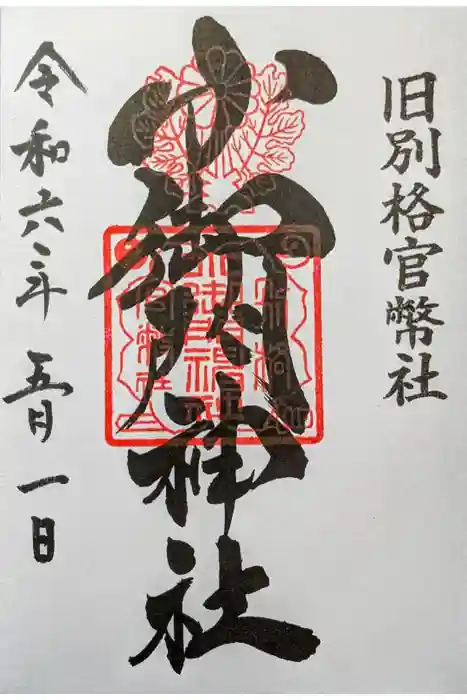 旧別格官幣社
小御門神社
令和六年五月一日